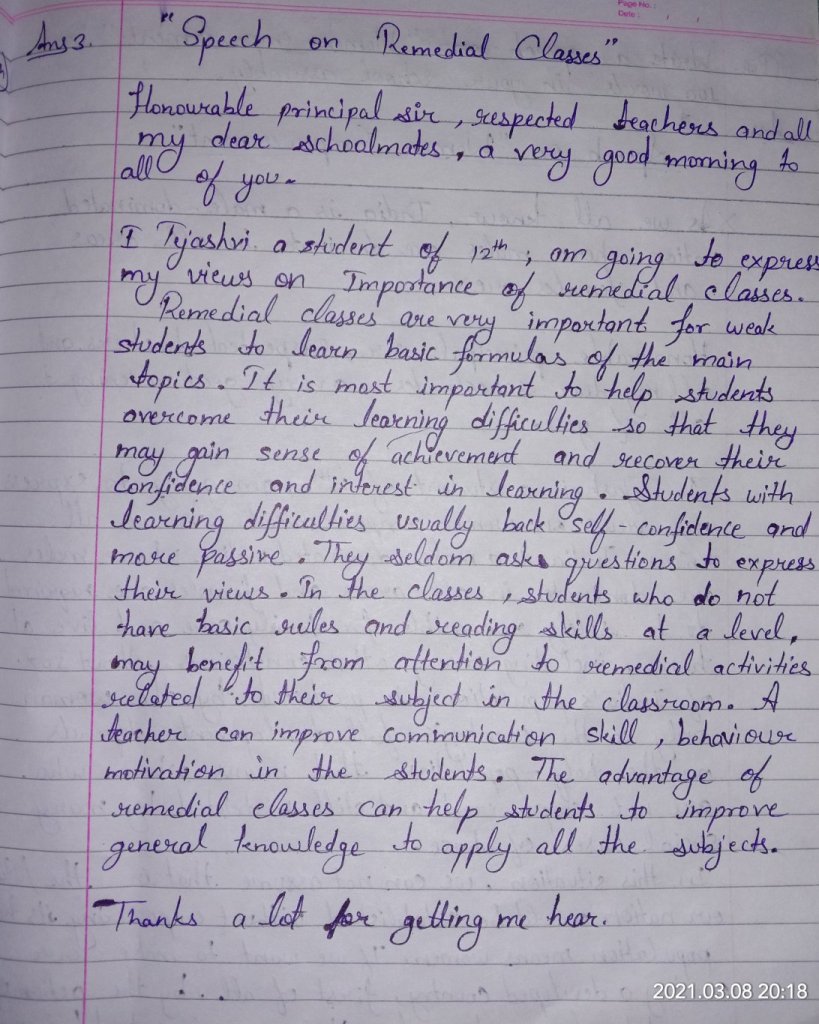 Page No.:
Date:
Ans 3. "Speech on Remedial Classes"
Honourable principal sir, respected teachers and all
my dear schoolmates, a very good morning to
all of you.
I Tejashri a student of 12th, am going to express
my views on Importance of remedial classes.
Remedial classes are very important for weak
students to learn basic formulas of the main
topics. It is most important to help students
overcome their learning difficulties so that they
may gain sense of achievement and recover their
confidence and interest in learning. Students with
learning difficulties usually back self-confidence and
more passive. They seldom ask questions to express
their views. In the classes, students who do not
have basic rules and reading skills at a level,
may benefit from attention to remedial activities
related to their subject in the classroom. A
teacher can improve communication skill, behaviour
motivation in the students. The advantage of
remedial classes can help students to improve
general knowledge to apply all the subjects.
Thanks a lot for getting me hear.
2021.03.08 20:18